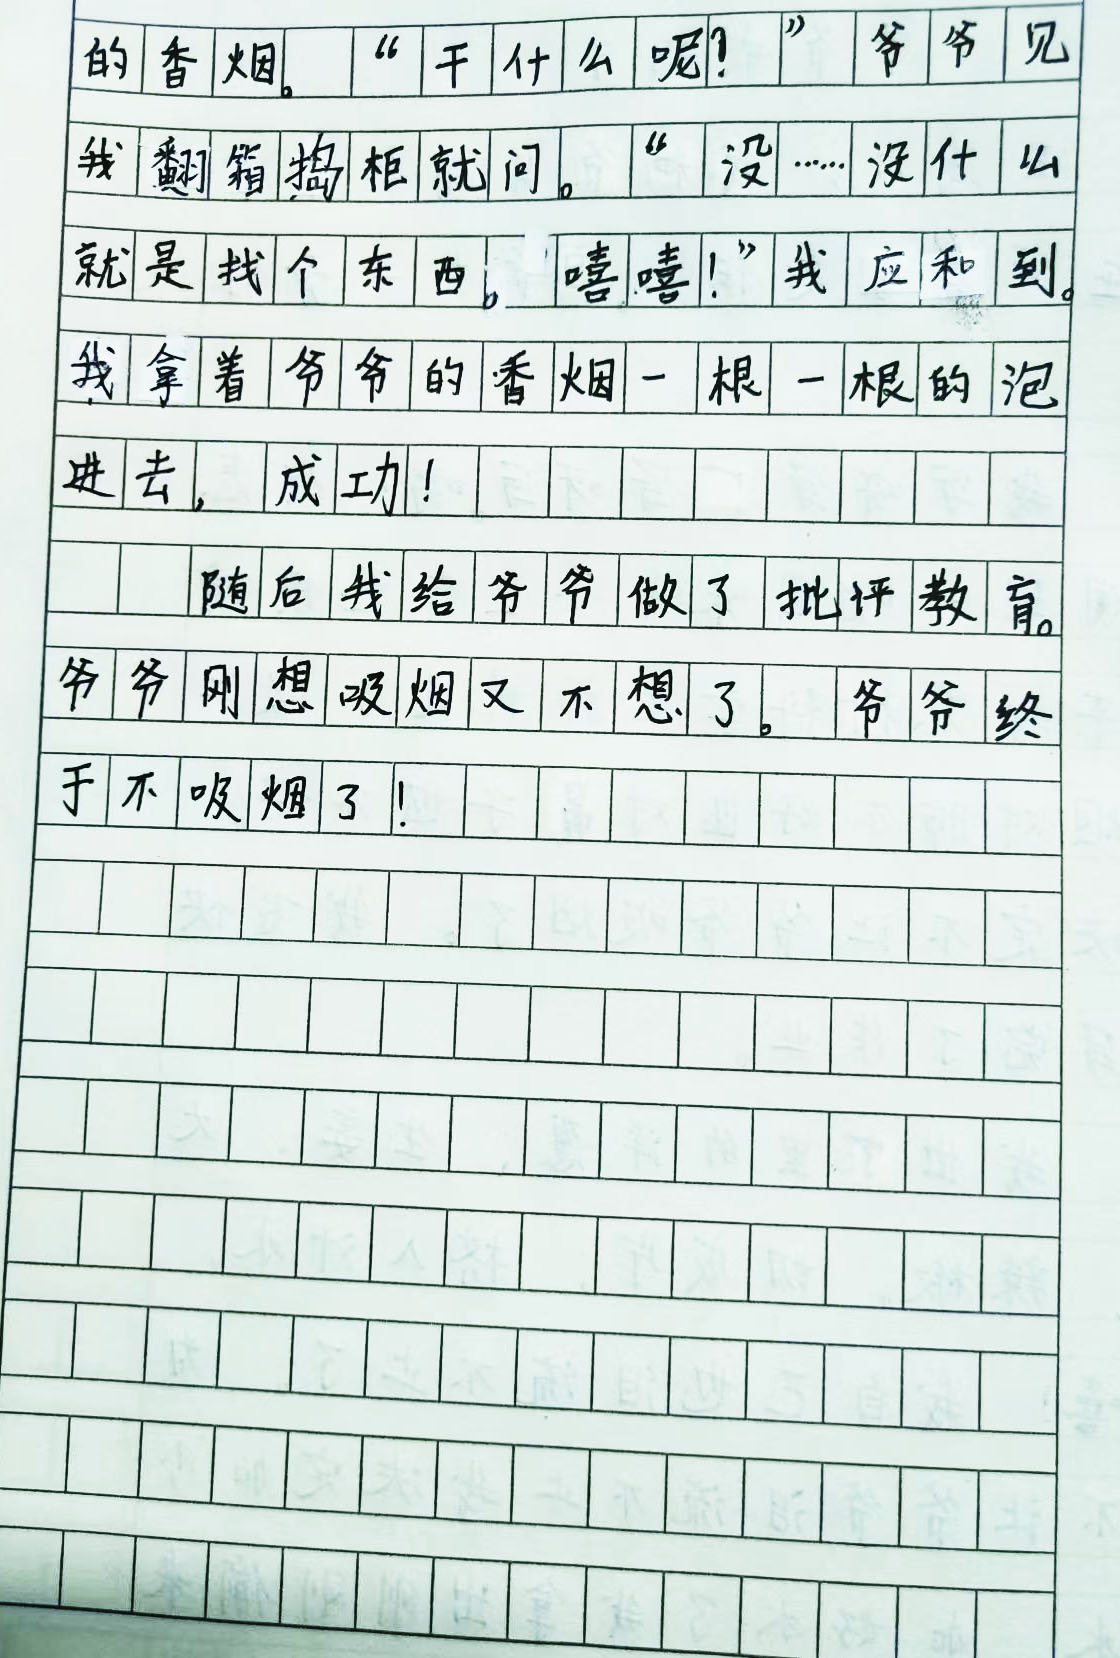 的香烟。“干什么呢？”爷爷见
我翻箱捣柜就问。“没……没什么
就是找个东西。嘻嘻！”我应和到。
我拿着爷爷的香烟一根一根的泡
进去，成功！
随后我给爷爷做了批评教育。
爷爷刚想吸烟又不想了。爷爷终
于不吸烟了！